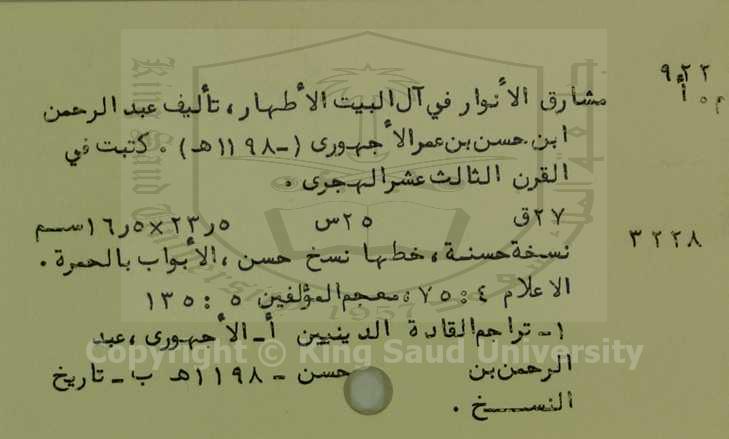 ٩٢٢
م٠أ
مشارق الأنوار في آل البيت الأطهار، تأليف عبد الرحمن
ابن حسن بن عمر الأجهورى (-١١٩٨هـ). كتبت في
القرن الثالث عشر الهجرى.
٢٧ق ٢٥س ٢٣ر٥×١٦ر٥سم
٣٢٢٨
نسخة حسنة، خطها نسخ حسن، الأبواب بالحمرة.
الاعلام ٤: ٧٥، معجم المؤلفين ٥: ١٣٥
١- تراجم القادة الدينيين أ- الأجهورى، عبد
الرحمن بن حسن - ١١٩٨هـ ب- تاريخ
النسخ.
Copyright © King Saud University
King Saud University
1957